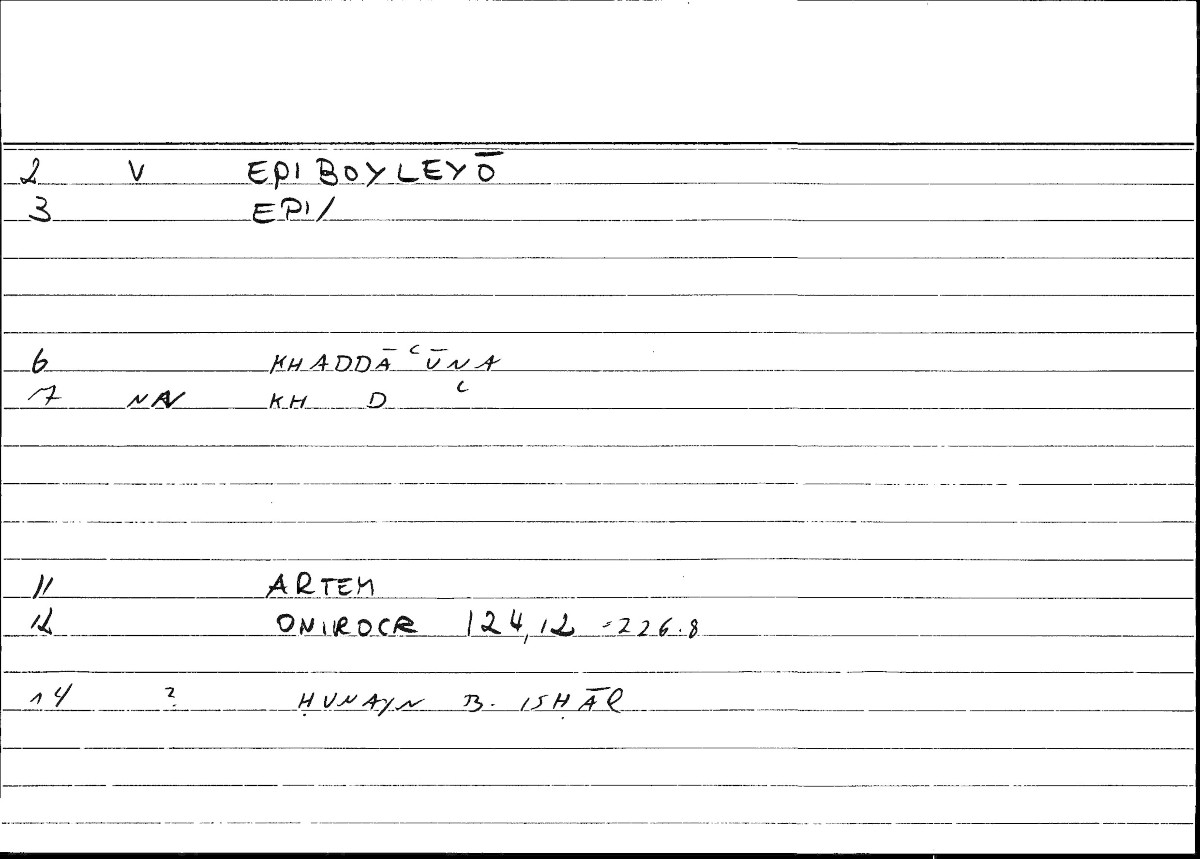 2 V EPIBOYLEYŌ
3 EPI/
6 KHADDĀʿŪNA
7 NN KH D ʿ
11 ARTEM
12 ONIROCR 124,12 =226.8
14 ? ḤUNAYN B. ISḤĀQ